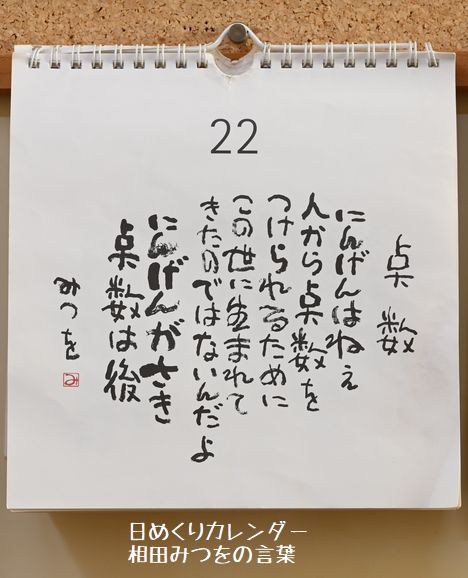 22
点数
にんげんはねぇ
人から点数を
つけられるために
この世に生まれて
きたのではないんだよ
にんげんがさき
点数は後
みつを
み
日めくりカレンダー
相田みつをの言葉